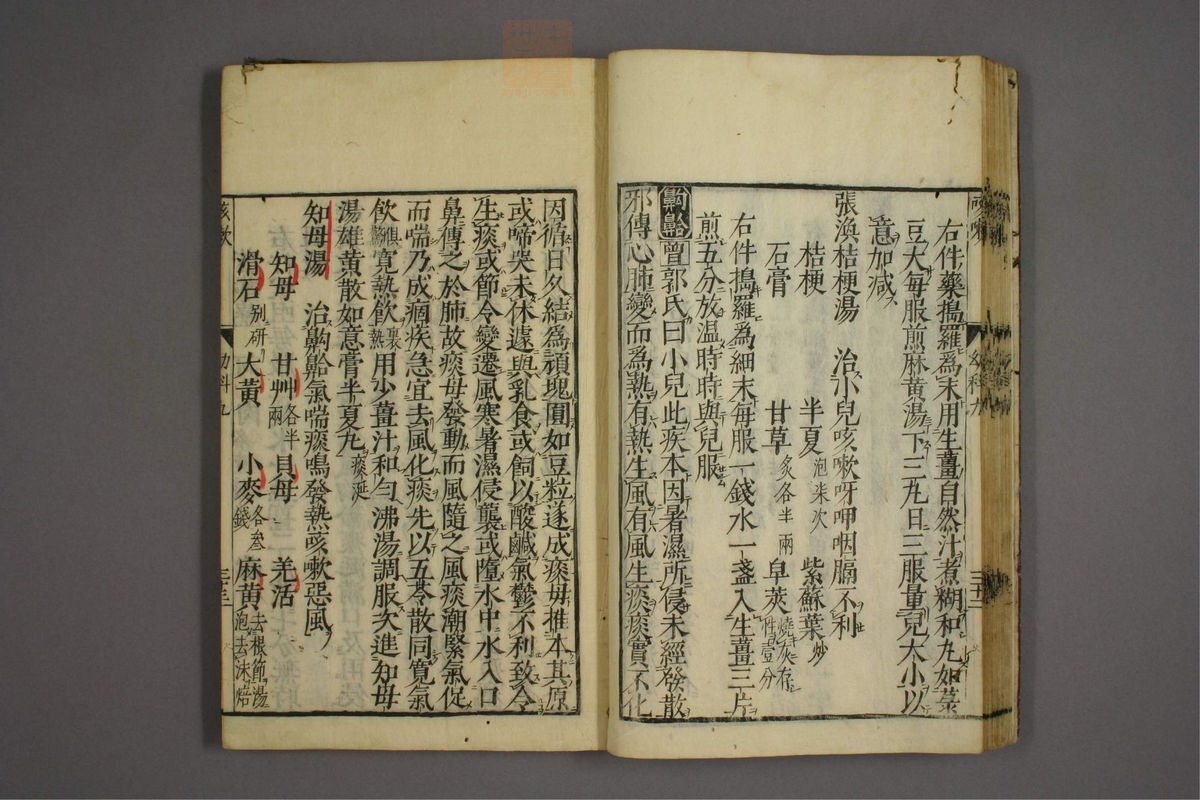 右件藥搗羅爲末用生薑自然汁煮糊和丸如菉
豆大每服煎麻黄湯下三丸日三服量兒大小以
意加减
張渙桔梗湯 治小兒咳嗽呀呷咽膈不利
桔梗 半夏泡柒次 紫蘇葉炒
石膏 甘草炙各半兩 皁莢燒灰存性壹分
右件搗羅爲細末每服一錢水一盞入生薑三片
煎五分放温時時與兒服
齁䶎曾郭氏曰小兒此疾本因暑濕所侵未經發散
邪傳心肺變而爲熱有熱生風有風生痰痰實不化
因循日久結爲頑塊圓如豆粒遂成痰母推本其原
或啼哭未休遽與乳食或飼以酸鹹氣鬱不利致令
生痰或節令變遷風寒暑濕侵襲或墮水中水入口
鼻傳之於肺故痰母發動而風隨之風痰潮緊氣促
而喘乃成痼疾急宜去風化痰先以五苓散同寛氣
飲寛熱飲用少薑汁和勻沸湯調服次進知母
湯雄黄散如意膏半夏丸痰涎
知母湯 治齁䶎氣喘痰鳴發熱咳嗽惡風
知母 甘艸各半兩 貝母 羌活
滑石别研 大黄 小麥各叁錢 麻黄去根節湯泡去沫焙
咳嗽
幼科九
三十二
咳嗽
幼科九
三十三